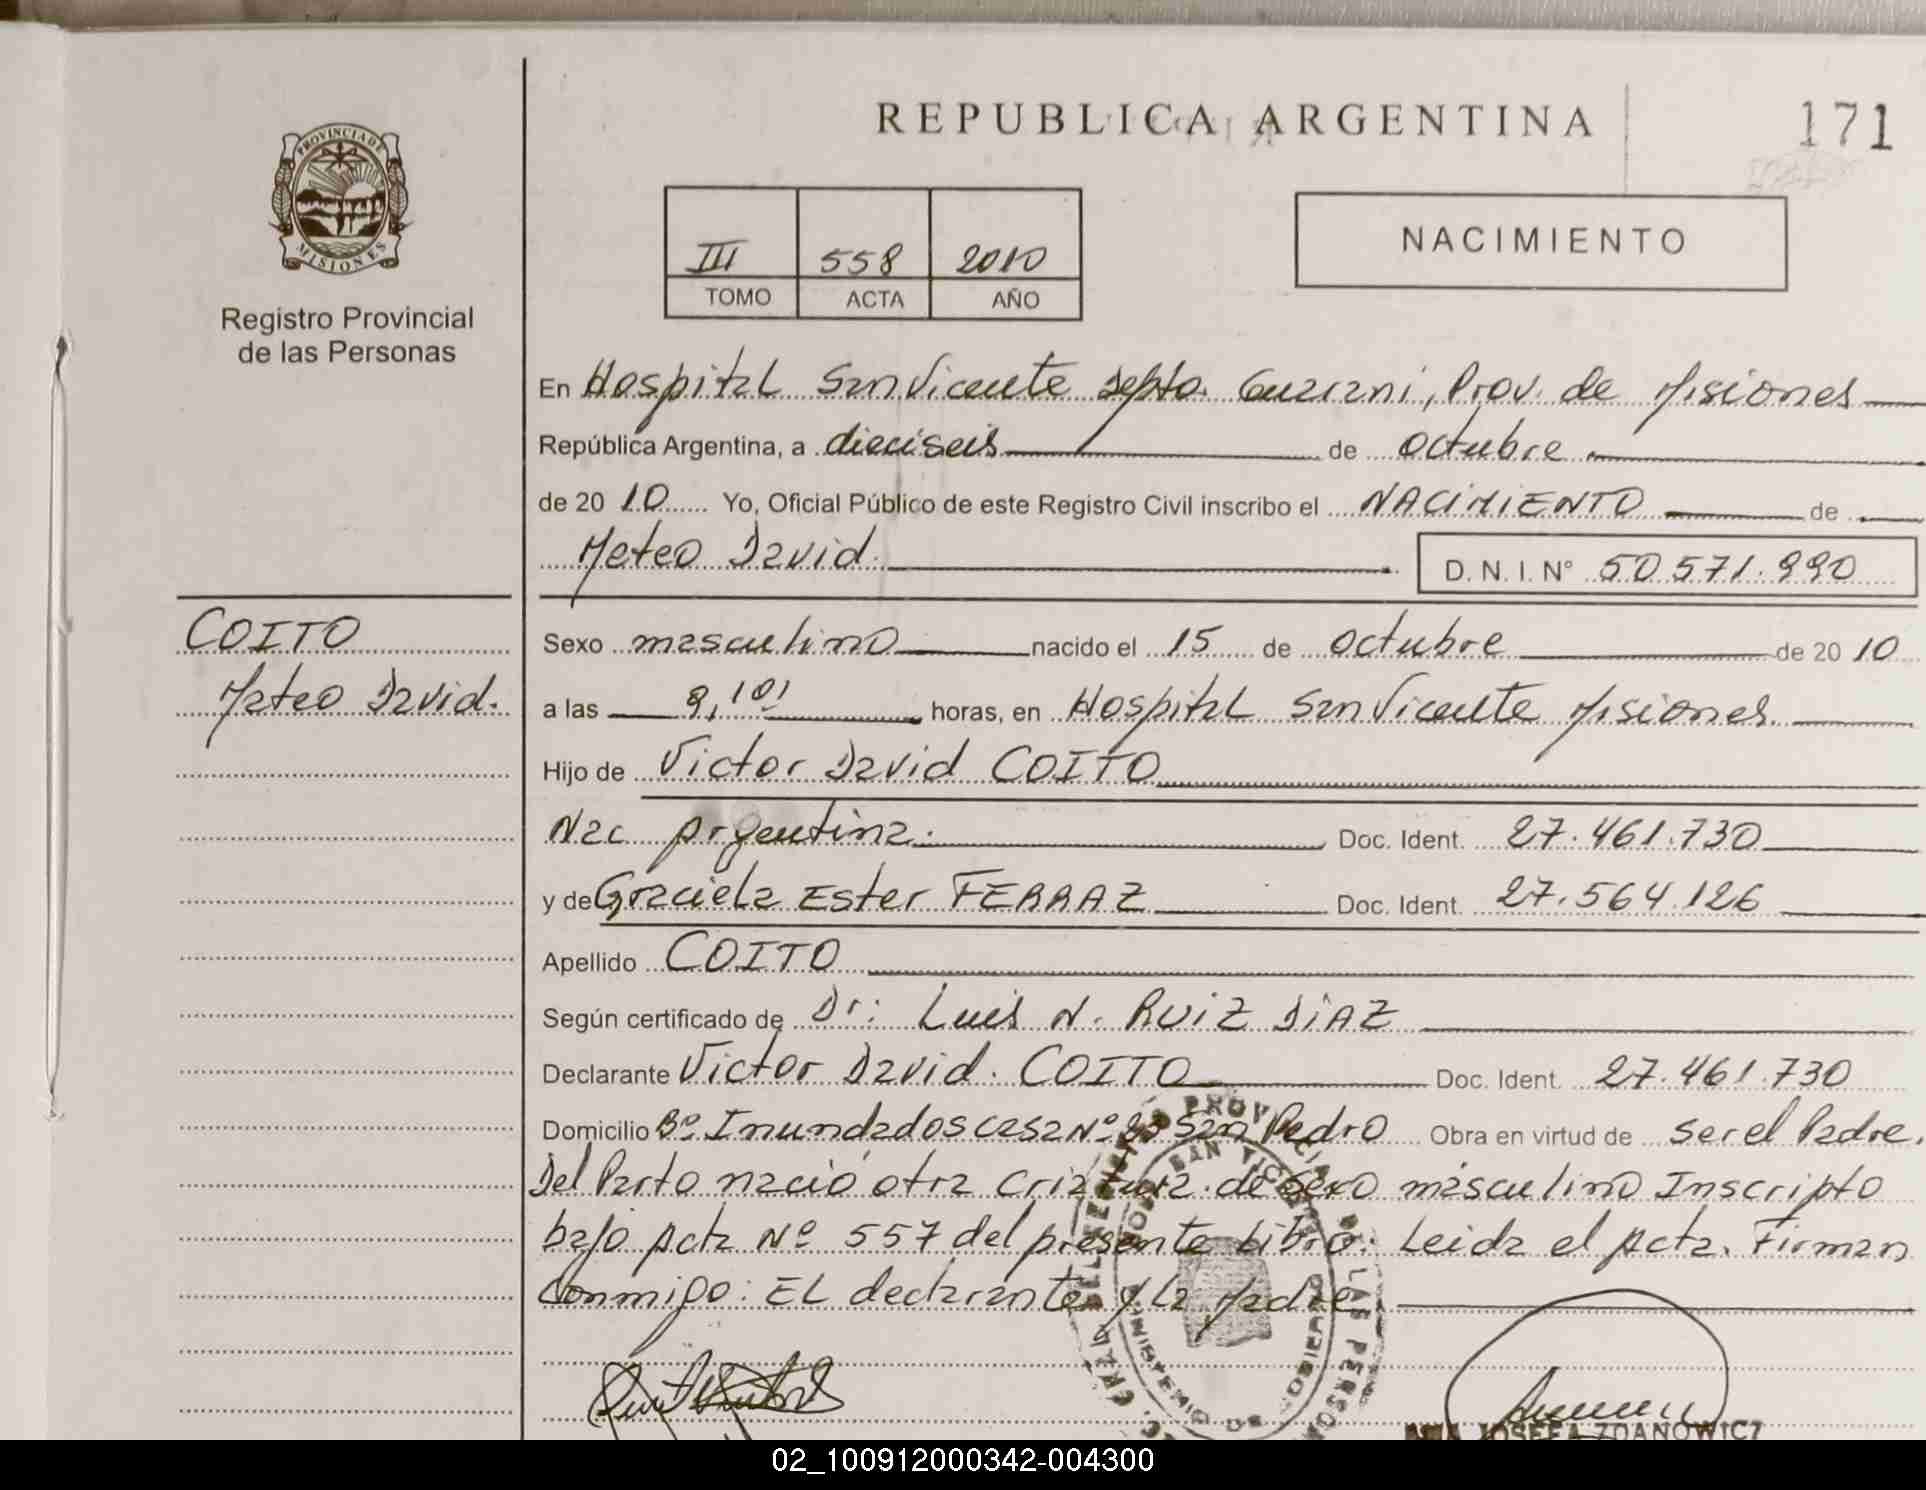 REPUBLICA ARGENTINA
171
PROVINCIA DE
MISIONES
Registro Provincial
de las Personas
III 558 2010
TOMO ACTA AÑO
NACIMIENTO
En Hospital San Vicente Depto. Guarani, Prov. de Misiones
República Argentina, a dieciseis de octubre
de 20 10 Yo, Oficial Público de este Registro Civil inscribo el NACIMIENTO de
Mateo David.
D. N. I. N° 50.571.990
COITO
Mateo David.
Sexo masculino nacido el 15 de octubre de 20 10
a las horas, en Hospital San Vicente Misiones
Hijo de Victor David COITO
Nac Argentina. Doc. Ident. 27.461.730
y de Graciela Ester FERRAZ Doc. Ident. 27.564.126
Apellido COITO
Según certificado de Dr: Luis N. RUIZ DIAZ
Declarante Victor David. COITO Doc. Ident. 27.461.730
Domicilio Bº Inundados casa Nº San Pedro Obra en virtud de ser el Padre.
Del Parto nació otra criatura de sexo masculino Inscripto
bajo Acta Nº 557 del presente Libro. Leida el Acta. Firman
Conmigo: EL declarante y La Madre
JOSEFA ZDANOWICZ
02_100912000342-004300